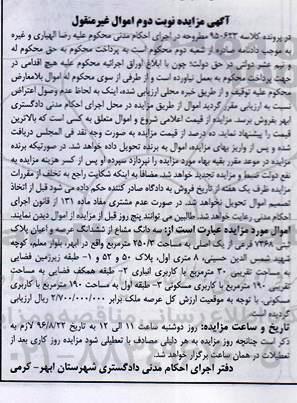 آگهی مزایده نوبت دوم اموال غیرمنقول
در پرونده کلاسه ۹۵۰۶۲۳ مطروحه در اجرای احکام مدنی محکوم علیه رضا الهیاری و غیره
به موجب دادنامه صادره از شعبه دوم محکوم است به پرداخت محکوم به حق محکوم له
و نیم عشر دولتی در حق دولت؛ چون با ابلاغ اوراق اجرائیه محکوم علیه هیچ اقدامی در
جهت پرداخت محکوم به بعمل نیاورده است و از طرفی از سوی محکوم له اموال بلامعارض
محکوم علیه توقیف و از طریق خبره محلی ارزیابی شده، اینک به لحاظ عدم وصول اعتراض
نسبت به ارزیابی مقرر گردید اموال از طریق مزایده در محل اجرای احکام مدنی دادگستری
ابهر بفروش برسد. مزایده از قیمت اعلامی شروع و اموال متعلق به کسی است که بالاترین
قیمت را پیشنهاد نماید. ده درصد از قیمت مزایده به صورت وجه نقد فی المجلس دریافت
شده و پس از واریز بهای مزایده، اموال به برنده تحویل داده خواهد شد. در صورتیکه برنده
مزایده در موعد مقرر بقیه بهاء مورد مزایده را نپردازد سپرده او پس از کسر هزینه مزایده به
نفع دولت ضبط و مزایده تجدید خواهد شد. مضافا به اینکه شکایت راجع به تخلف از مقررات
مزایده ظرف یک هفته از تاریخ فروش به دادگاه صادر کننده حکم داده می شود قبل از اتخاذ
تصمیم اموال تحویل نخواهد شد. در صورت عدم مشتری مفاد ماده ۱۳۱ از قانون اجرای
احکام مدنی رعایت خواهد شد. طالبین می توانند پنج روز قبل از مزایده از اموال دیدن نمایند.
اموال مورد مزایده عبارت است از: سه دانگ مشاع از ششدانگ عرصه و اعیان پلاک
ثبتی ۷۳۶۸ فرعی از یک اصلی به مساحت ۲۵۰/۳ مترمربع واقع در ابهر، بلوار معلم، کوچه
شهید شمس الدین حسینی، ۸ متری اول، پلاک ۵۰ و ۵۲ و ۱- طبقه زیرزمین فضایی
به مساحت تقریبی ۳۰ مترمربع با کاربری انباری ۲- طبقه همکف فضایی به مساحت
تقریبی ۱۹۰ مترمربع با کاربری مسکونی ۳- طبقه اول به مساحت ۱۹۰ مترمربع با کاربری
مسکونی، با توجه به موقعیت ارزش کل عرصه ملک برابر ۲/۷۰۰/۰۰۰/۰۰۰ ریال ارزیابی
گردیده است.
تاریخ و ساعت مزایده: روز دوشنبه ساعت ۱۱ الی ۱۲ به تاریخ ۹۶/۸/۲۲ لازم به
ذکر است چنانچه روز مزایده به هر دلیلی مصادف با تعطیلی شود مزایده روز کاری بعد از
تعطیلات در همان ساعت برگزار خواهد شد.
دفتر اجرای احکام مدنی دادگستری شهرستان ابهر- کرمی